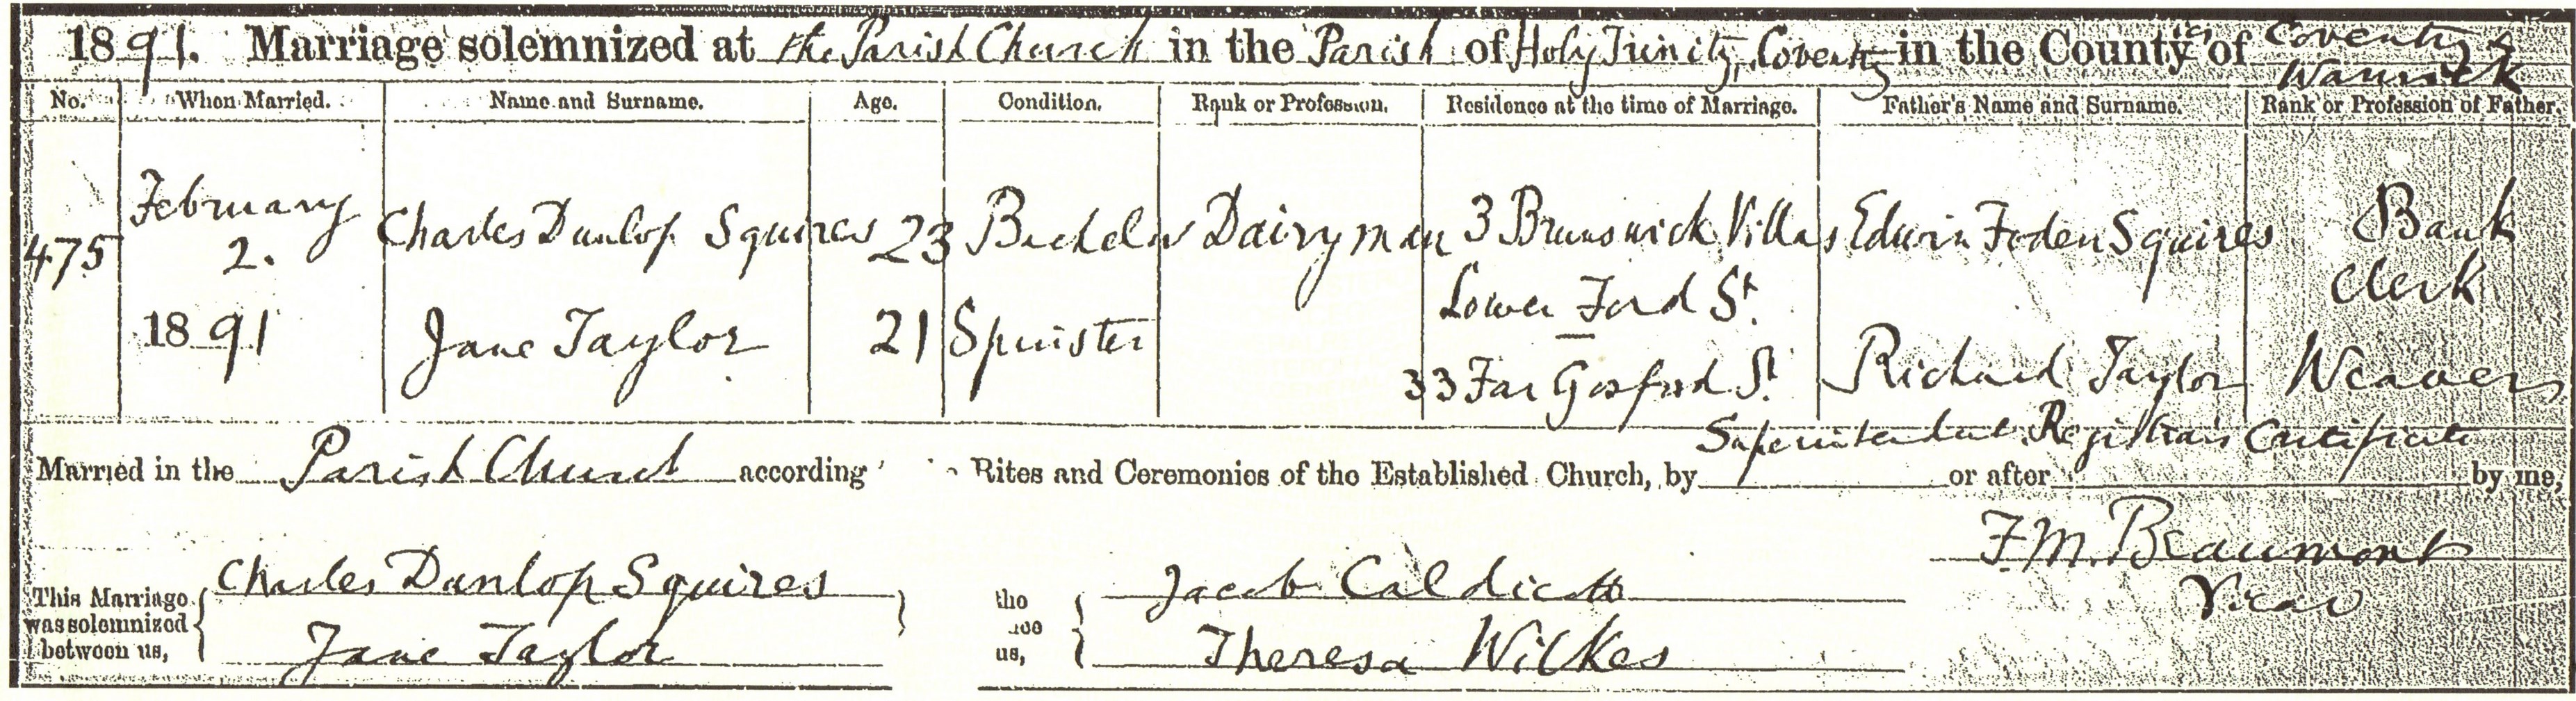 1891. Marriage solemnized at the Parish Church in the Parish of Holy Trinity, Coventry in the Counties of Coventry & Warwick
No. When Married. Name and Surname. Age. Condition. Rank or Profession. Residence at the time of Marriage. Father's Name and Surname. Rank or Profession of Father.
475 February 2. 1891 Charles Dunlop Squires 23 Bachelor Dairyman 3 Brunswick Villas Edwin Foden Squires Bank Clerk
Lower Ford St.
Jane Taylor 21 Spinster 33 Far Gosford St. Richard Taylor Weaver
Superintendent Registrar's Certificate
Married in the Parish Church according Rites and Ceremonies of the Established Church, by or after by me,
F.M. Beaumont
Vicar
This Marriage was solemnized between us,
Charles Dunlop Squires
Jane Taylor
the
us,
Jacob Caldicott
Theresa Wilkes